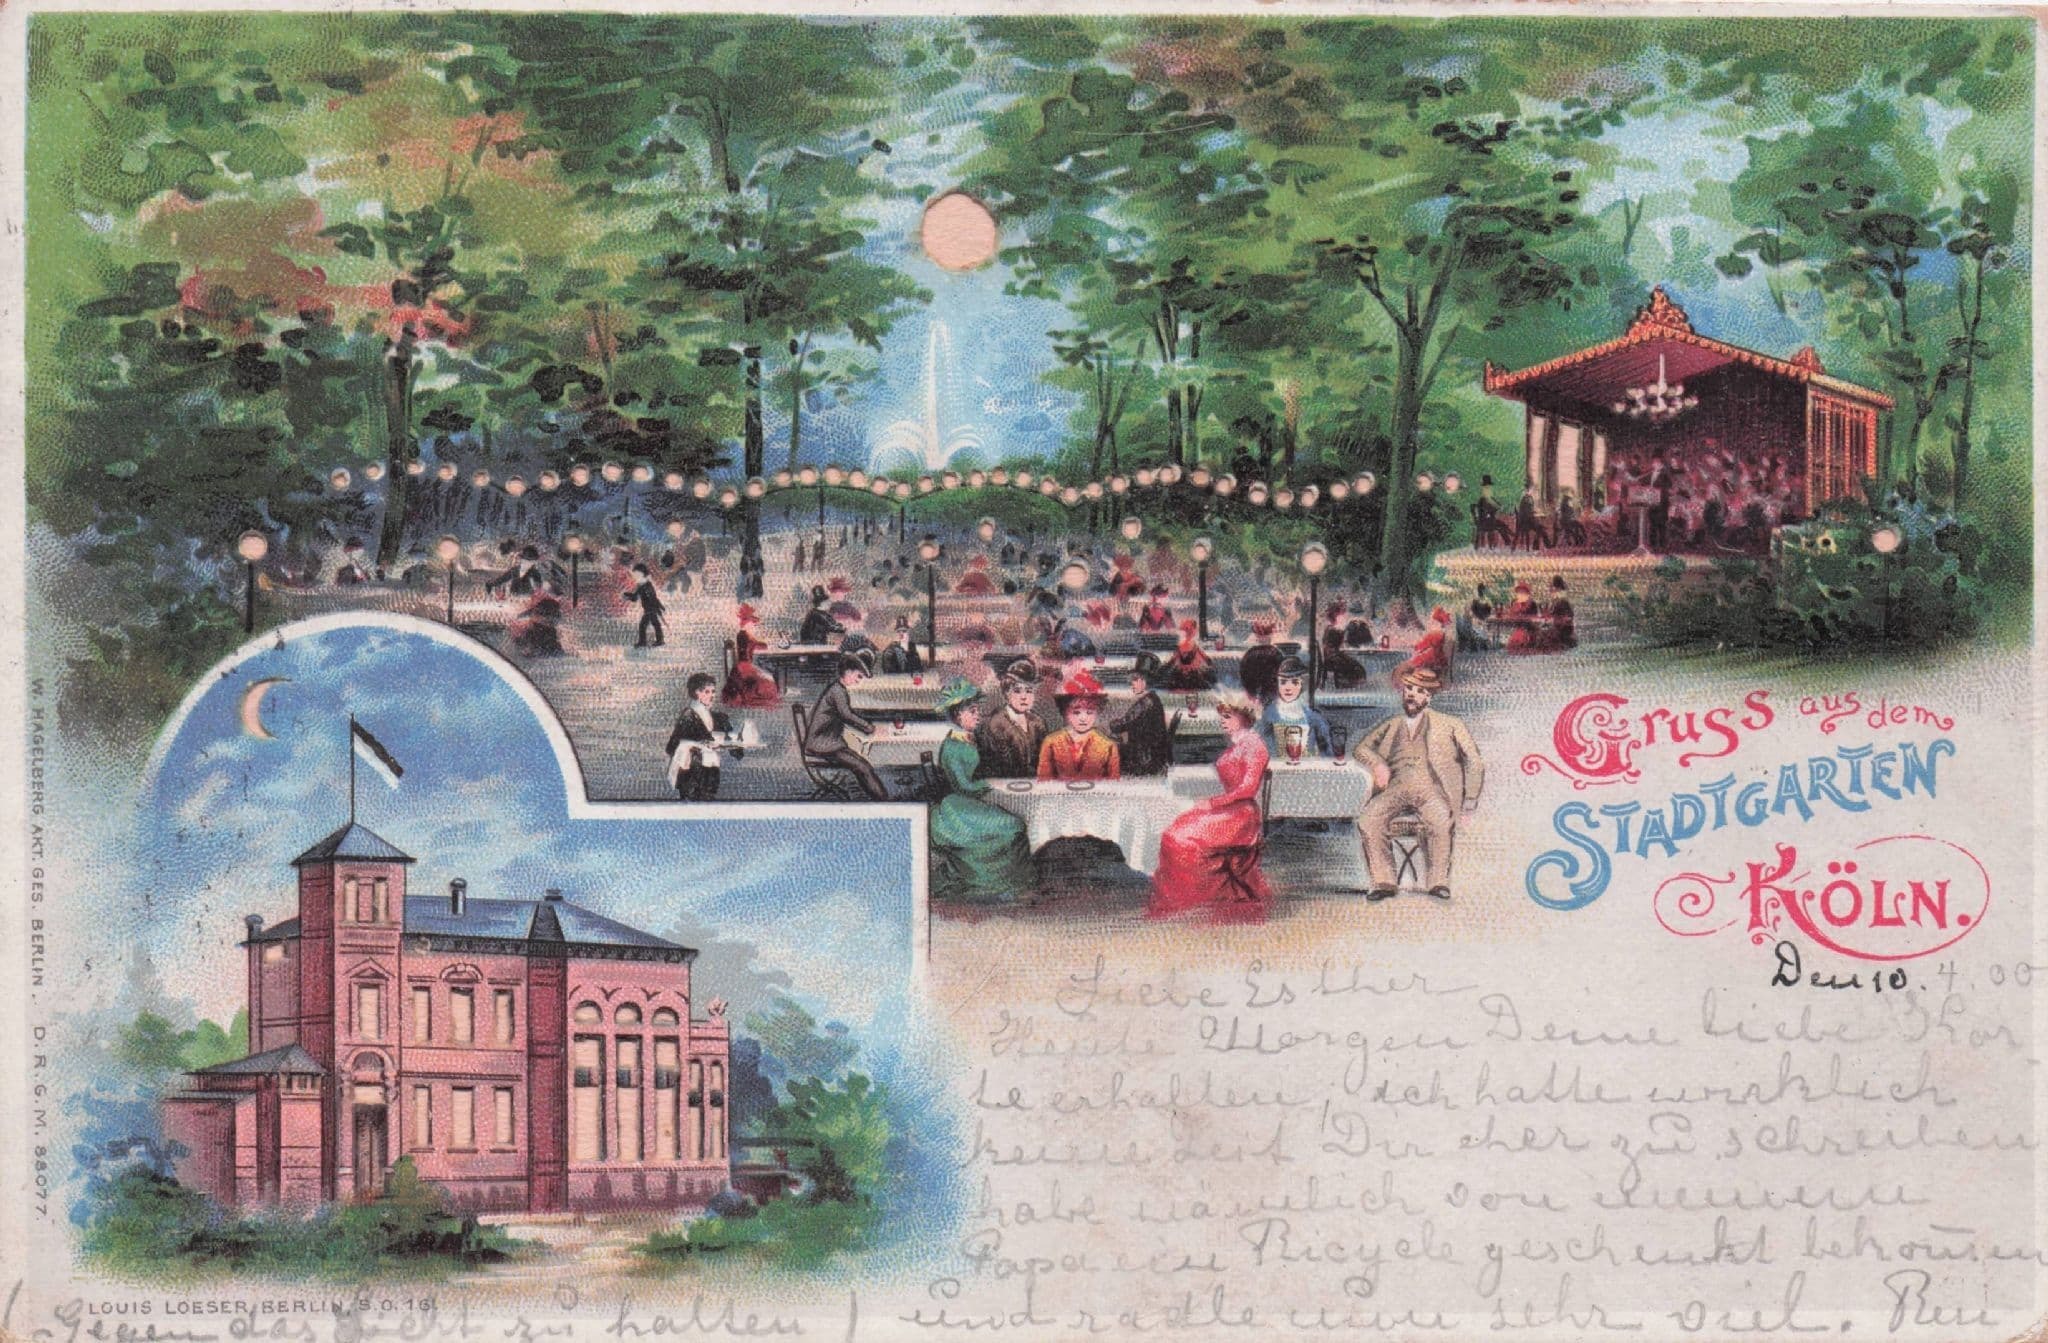 Gruss aus dem
STADTGARTEN
KÖLN.
Den 10. 4. 00
Liebe Esther
Heute Morgen Deine liebe Kar-
te erhalten, ich hatte wirklich
keine Zeit Dir eher zu schreiben
habe nämlich von meinem
Papa ein Bicycle geschenkt bekommen
und radle nun sehr viel. Bin
(Gegen das Licht zu halten)
LOUIS LOESER, BERLIN, S.O. 16.
W. HAGELBERG AKT. GES. BERLIN. D. R. G. M. 88077.